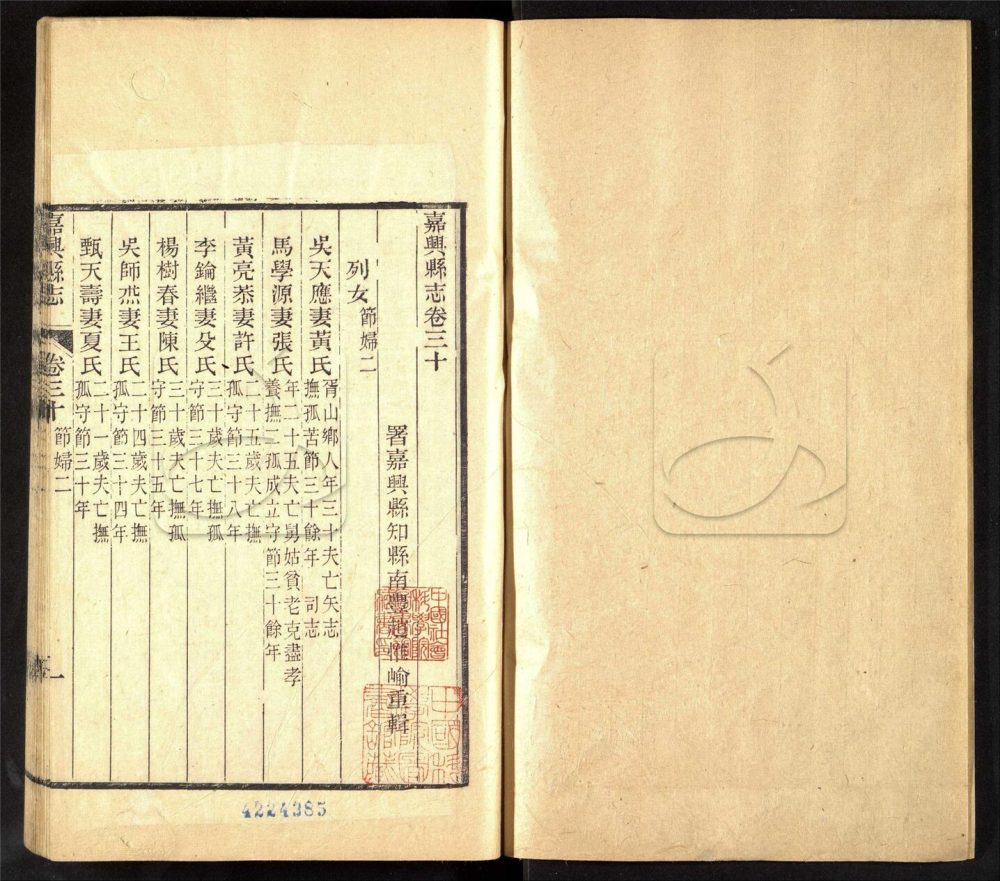 嘉興縣志卷三十
署嘉興縣知縣南豐趙惟崳重輯
列女 節婦二
吳天應妻黃氏 胥山鄉人年三十夫亡矢志
撫孤苦節三十餘年 司志
馬學源妻張氏 年二十五夫亡舅姑貧老克盡孝
養撫二孤成立守節三十餘年
黃亮恭妻許氏 二十五歲夫亡撫
孤守節三十八年
李錀繼妻殳氏 三十歲夫亡撫孤
守節三十七年
楊樹春妻陳氏 三十歲夫亡撫孤
守節三十五年
吳師烝妻王氏 二十四歲夫亡撫
孤守節三十四年
甄天壽妻夏氏 二十一歲夫亡撫
孤守節三十年
嘉興縣志 卷三十 節婦二 一
4224385